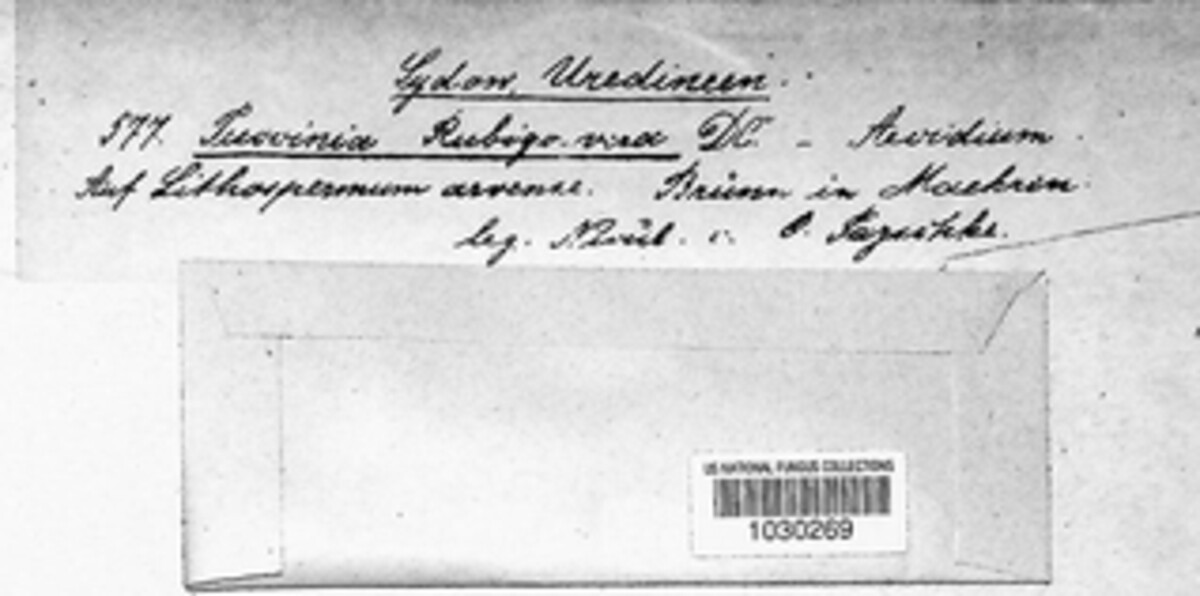 Sydow, Uredineen.
577. Puccinia Rubigo-vera DC. - Aecidium
Auf Lithospermum arvense. Brünn in Maehren.
leg.
US NATIONAL FUNGUS COLLECTIONS
1030269